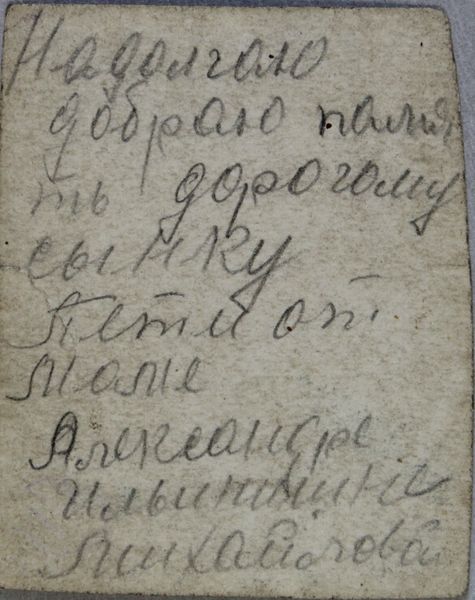 Надолгаю
добраю памя
ть дорогому
сынку
Пети от
маме
Александре
Ильиничне
Михайловой